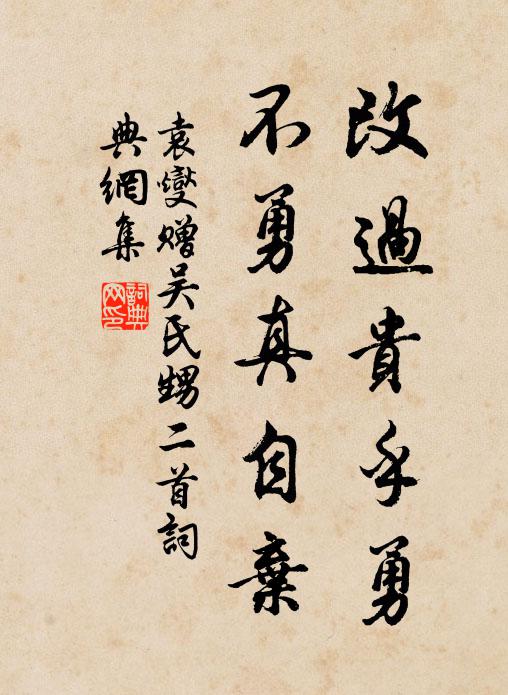 改過貴乎勇
不勇真自棄
袁燮贈吴氏甥二首詞
典網集
詞典網印